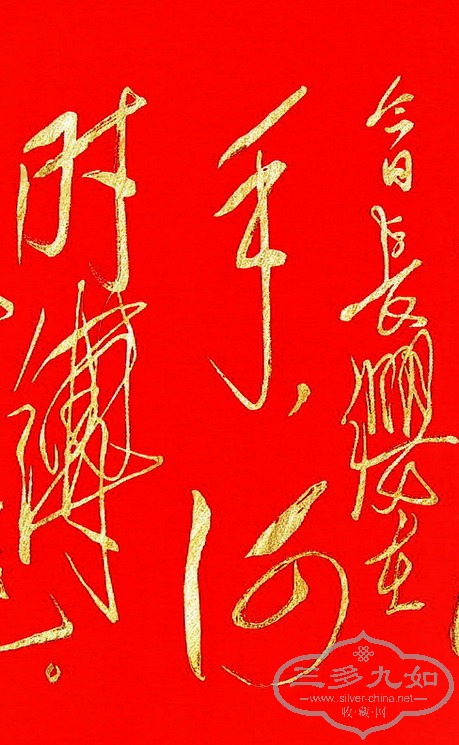 今日長纓在
手,何
时縛
三多九如
www.silver-china.net
收·藏·网